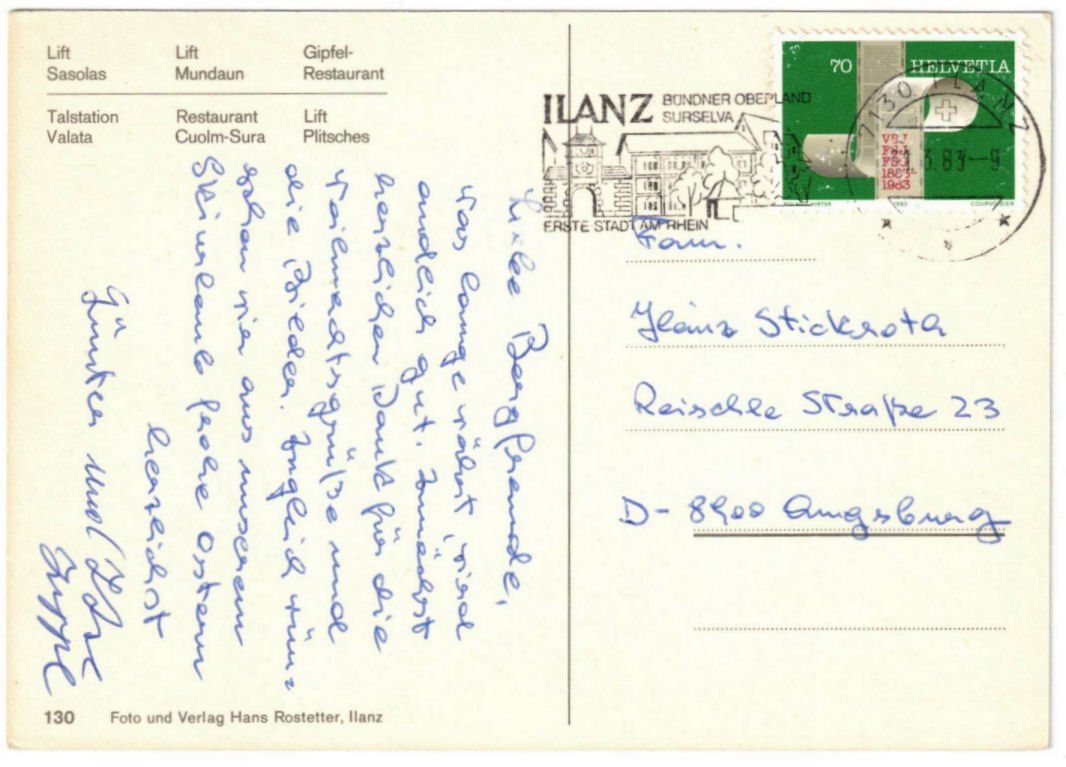 Lift Sasolas
Lift Mundaun
Gipfel-Restaurant
Talstation Valata
Restaurant Cuolm-Sura
Lift Plitsches
Liebe Bergfreunde,
was lange währt, wird
endlich gut. Zunächst
herzlichen Dank für die
Weihnachtsgrüße und
die Bilder. Zugleich wün-
schen wir aus unserem
Skiurlaub frohe Ostern
herzlichst
Günter und
130 Foto und Verlag Hans Rostetter, Ilanz
ILANZ BÜNDNER OBERLAND
SURSELVA
ERSTE STADT AM RHEIN
70 HELVETIA
VSJ
FSJ
1883-
1983
1983
COURVOISIER
7130 ILANZ
3.83-9
Fam.
Heinz Stickroth
Reischle Straße 23
D-8900 Augsburg